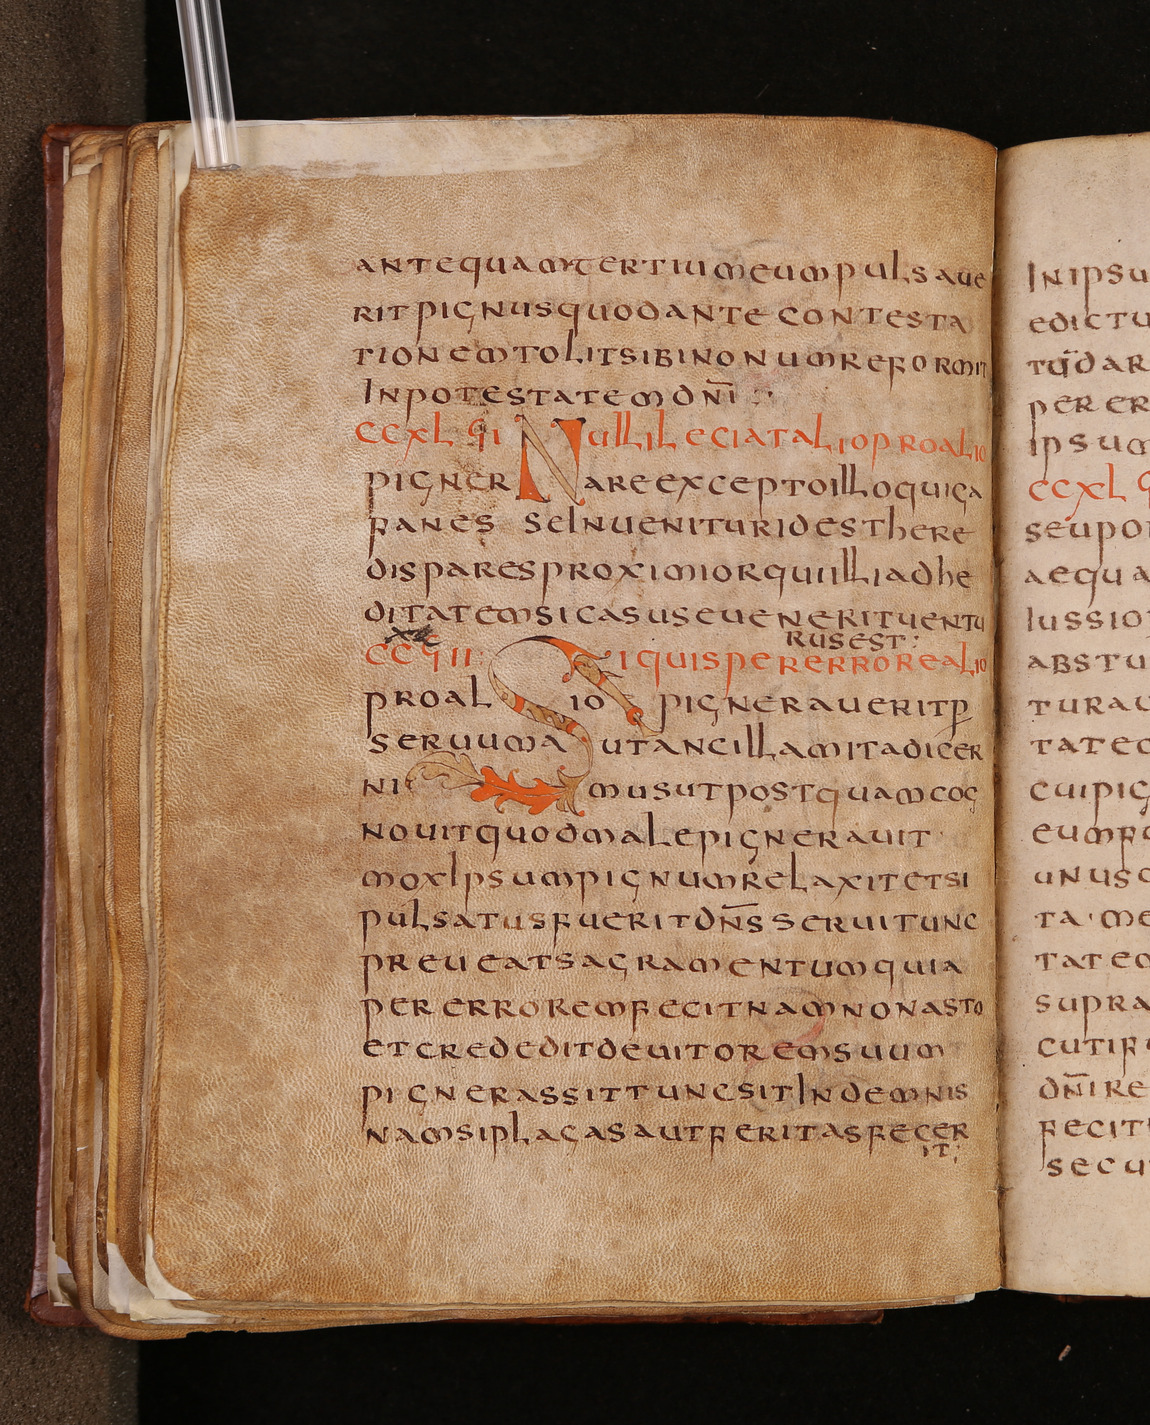 antequamtertiumeumpulsaue
ritpignusquodante contesta
tionemtolitsibinonumreformit
Inpotestatem dn̄i
ccxlqi Nulliliceatalioproalio
pignerareexceptoilloquiga
fanes seInuenituridesthere
disparesproximiorquiilliadhe
ditatemsicasuseueneritventu
rusest:
ccqii: Siquispererrorealio
proalio pigneraueritp
seruumautancillamitadicer
nimusutpostquamcog
nouitquodmalepignerauit
moxIpsumpignumrelaxitetsi
pulsatusfueritdn̄sseruitunc
preueatsagramentumquia
pererroremfecitnamnonasto
etcrededitdeuitoremsuum
pignerassittuncsitIndemnis
namsiplagasautferitasfecer
it;
Inipsu
edictu
tq̄dar
per er
ipsum
ccxl q
seupon
aequa
Iussio
abstu
turau
tatec
cuipig
eumf
unusc
ta·me
tatec
supra
cutif
dn̄ire
fecit
secu